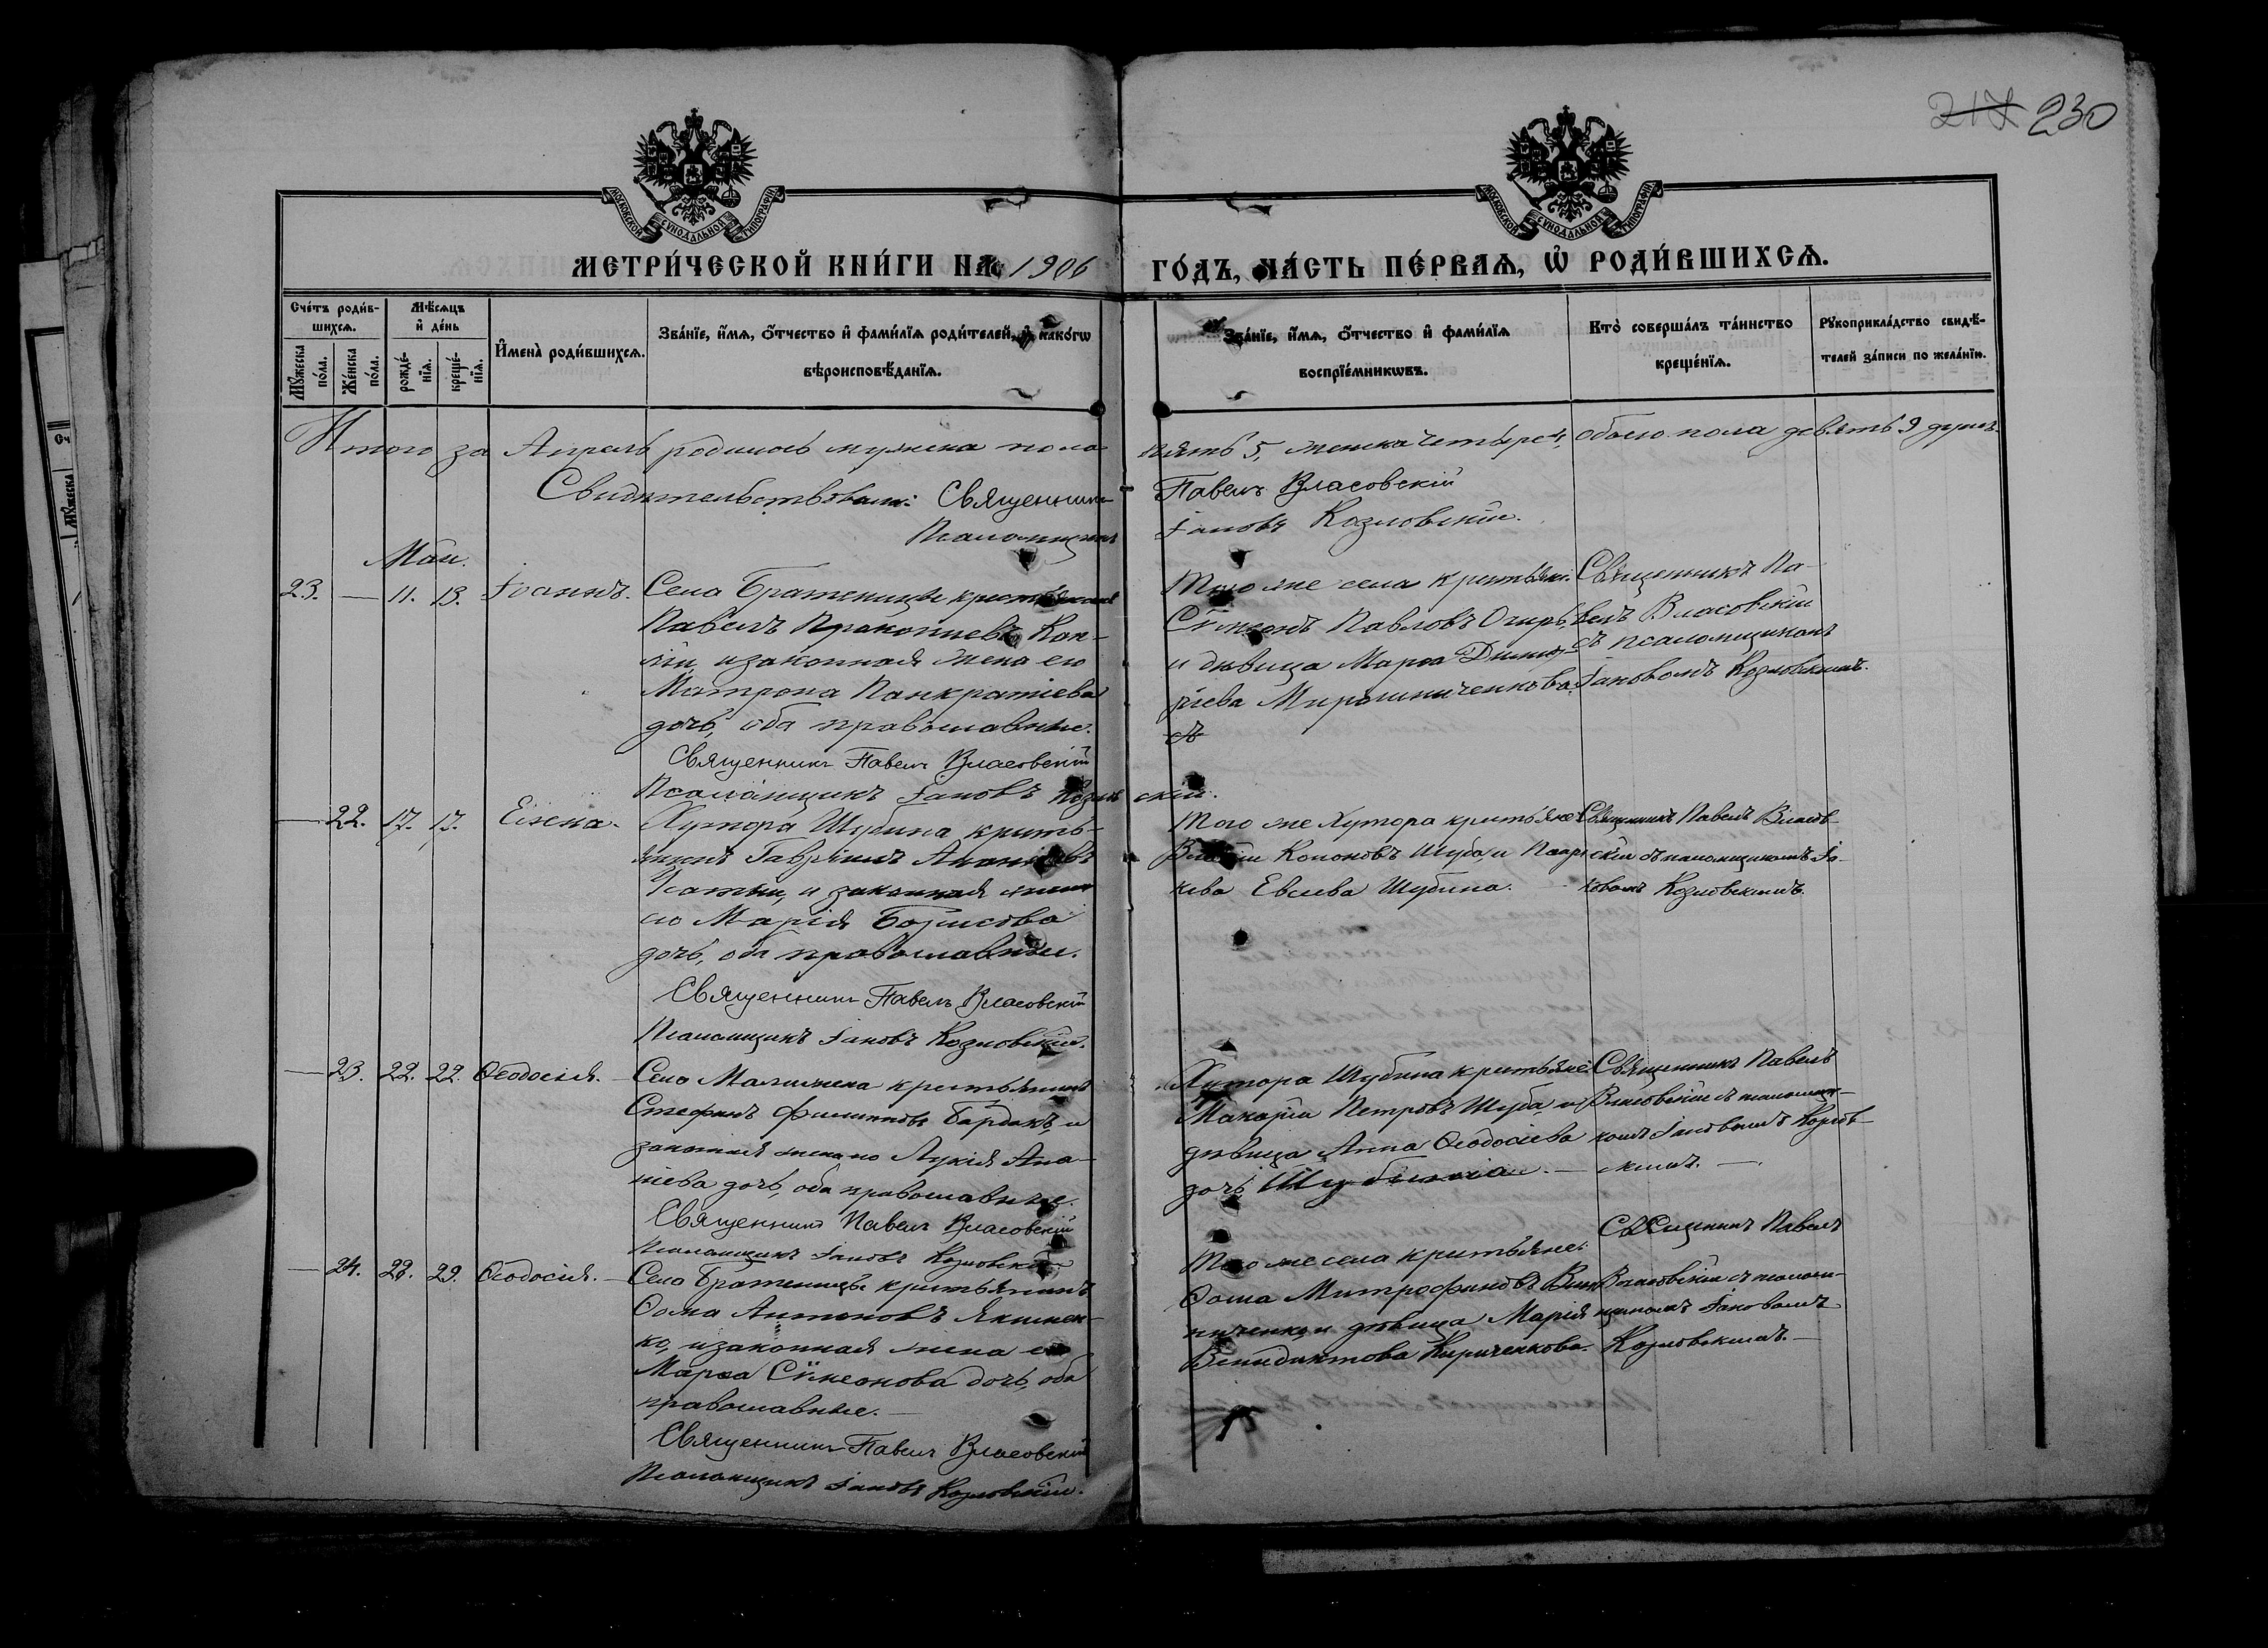 217 230
МОСКОВСКОЙ СУНОДАЛЬНОЙ ТИПОГРАФІИ
МОСКОВСКОЙ СУНОДАЛЬНОЙ ТИПОГРАФІИ
МЕТРИ́ЧЕСКОЙ КНИ́ГИ НА 1906 ГО́ДЪ, ЧА́СТЬ ПЕ́РВАѦ, Ѡ РОДИ́ВШИХСѦ.
Сче́тъ роди́вшихсѧ.
Мꙋ́жеска по́ла.
Же́нска по́ла.
Мѣ́сѧцъ и҆ де́нь
рожде́нїѧ.
креще́нїѧ.
И҆мена̀ роди́вшихсѧ.
Зва́нїе, и҆́мѧ, ѻ҆́тчество и҆ фами́лїѧ роди́телей, и҆ како́гѡ
вѣроисповѣ́данїѧ.
Зва́нїе, и҆́мѧ, ѻ҆́тчество и҆ фами́лїѧ
воспрїе́мникѡвъ.
Кто̀ соверша́лъ та́инство
креще́нїѧ.
Рꙋкоприкла́дство свидѣ́-
телей за́писи по жела́нїю.
Итого за Апрель родилось мужска пола пять 5, женска четыре 4, обоего пола девять 9 душъ.
Свидѣтельствовали: Священникъ Павелъ Власовскій
Псаломщикъ Іаковъ Козловскій.
Май.
23. — 11. 13. Іоаннъ.
Села Братеницы крестьянинъ
Павелъ Прокопиевъ
и законная жена его
Матрона Панкратіева
дочь, оба православные.
Священникъ Павелъ Власовскій
Псаломщикъ Іаковъ Козловскій.
Того же села крестьяне:
Симеонъ Павловъ
и дѣвица Марѳа Димит-
ріева Мирошниченкова.
съ
Священникъ Па-
велъ Власовскій
съ псаломщикомъ
Іаковомъ Козловскимъ.
— 22. 17. 17. Елена.
Хутора Шубина кресть-
янинъ Гавріилъ
и законная жена
его Марія Борисова
дочь, оба православные.
Священникъ Павелъ Власовскій
Псаломщикъ Іаковъ Козловскій.
Того же Хутора крестьяне:
Кононовъ Шуба и
Шубина. —
Священникъ Павелъ Власов-
скій съ псаломщикомъ Іа-
ковомъ Козловскимъ.
— 23. 22. 22. Ѳеодосія. —
Села крестьянинъ
Стефанъ Филипповъ Бардакъ, и
законная жена его Лукія Ана-
ніева дочь, оба православные.
Священникъ Павелъ Власовскій
Псаломщикъ Іаковъ Козловскій
Хутора Шубина крестьяне:
Макарій Петровъ Шуба, и
дѣвица Анна Ѳеодосіева
дочь Шубина. —
Священникъ Павелъ
Власовскій съ псаломщи-
комъ Іаковомъ Козлов-
скимъ. —
— 24. 28. 29. Ѳеодосія. —
Села Братеницы крестьянинъ
Ѳома Антоновъ Якимен-
ко, и законная жена его
Марѳа Симеонова дочь, оба
православные. —
Священникъ Павелъ Власовскій
Псаломщикъ Іаковъ Козловскій.
Того же села крестьяне:
Ѳома Митрофановъ
и дѣвица Марія
Венедиктова Кириченкова.
Священникъ Павелъ
Власовскій съ псалом-
щикомъ Іаковомъ
Козловскимъ. —